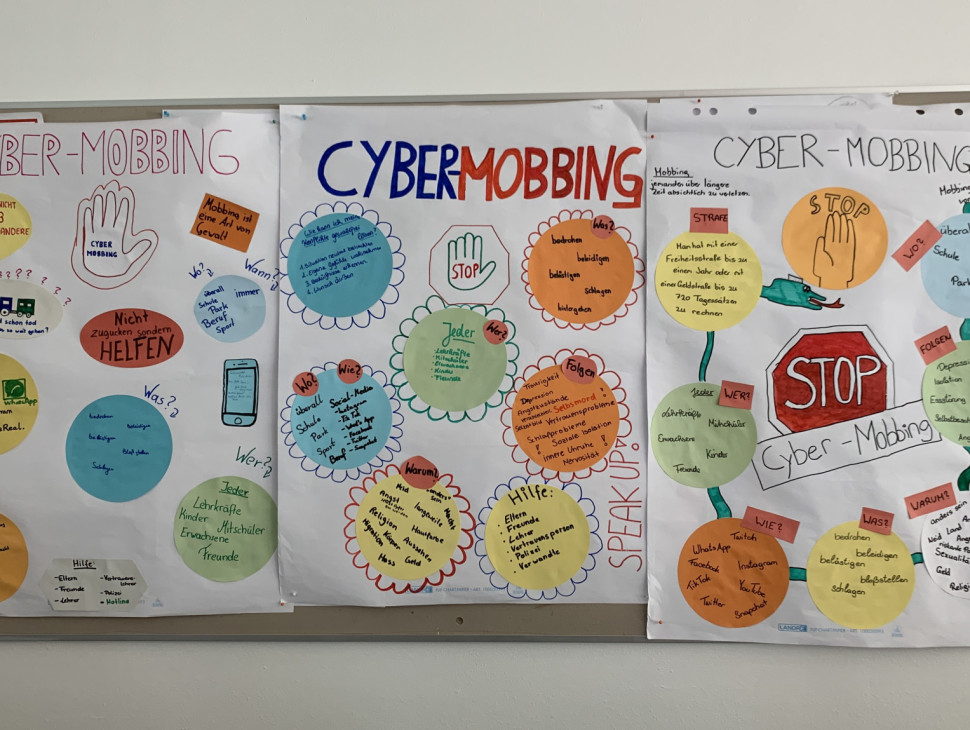 BER-MOBBING
NICHT
ANDERE
CYBER
MOBBING
Mobbing ist
eine Art von
Gewalt
Wo?
überall
Schule
Park
Beruf
Sport
Wann?
immer
Nicht
zugucken sondern
HELFEN
WhatsApp
Real.
Was?
bedrohen
beleidigen
belästigen
bloßstellen
Schlagen
Wer?
Jeder
Lehrkräfte
Kinder Mitschüler
Erwachsene
Freunde
Hilfe:
-Eltern
-Freunde
-Lehrer
-Vertrauens-
lehrer
-Polizei
-Hotline
CYBER-MOBBING
STOP
Was?
bedrohen
beleidigen
belästigen
Schlagen
hintergehen
Wer?
Jeder
• Lehrkräfte
• Mitschüler
• Erwachsene
• Kinder
• Freunde
Wo?
überall
Schule
Park
Sport
Beruf
Wie?
Social-Media
- Instagram
- Tik Tok
- What's App
- Facebook
- Twitter
- Snapchat
Folgen
Traurigkeit
Depression
Angstzustände
Selbstmord
Vertrauensprobleme
Schlafprobleme
Soziale Isolation
Innere Unruhe
Nervosität
Warum?
Neid
anders-
sein
Angst
Macht
Langeweile
Religion
Hautfarbe
Körper
Aussehen
Hass
Geld
Hilfe:
• Eltern
• Freunde
• Lehrer
• Vertrauensperson
• Polizei
• Verwandte
SPEAK UP!
CYBER-MOBBING
Mobbing
jemanden über längere
Zeit absichtlich zu verletzen.
STRAFE
Man hat mit einer
Freiheitsstrafe bis zu
einen Jahr oder mit
einer Geldstrafe bis zu
720 Tagessätzen
zu rechnen
STOP
WO?
überal
Schule
Park
STOP
Cyber-Mobbing
WER?
Jeder
Lehrkräfte
Mitschüler
Erwachsene
Kinder
Freunde
FOLGEN
Depression
Isolation
Essstörung
WIE?
Twitch
WhatsApp
Facebook
Instagram
TikTok
YouTube
Twitter
Snapchat
WAS?
bedrohen
beleidigen
belästigen
bloßstellen
schlagen
WARUM?
anders sein
Neid
Sexualität
Geld
Religi
LANDRÉ